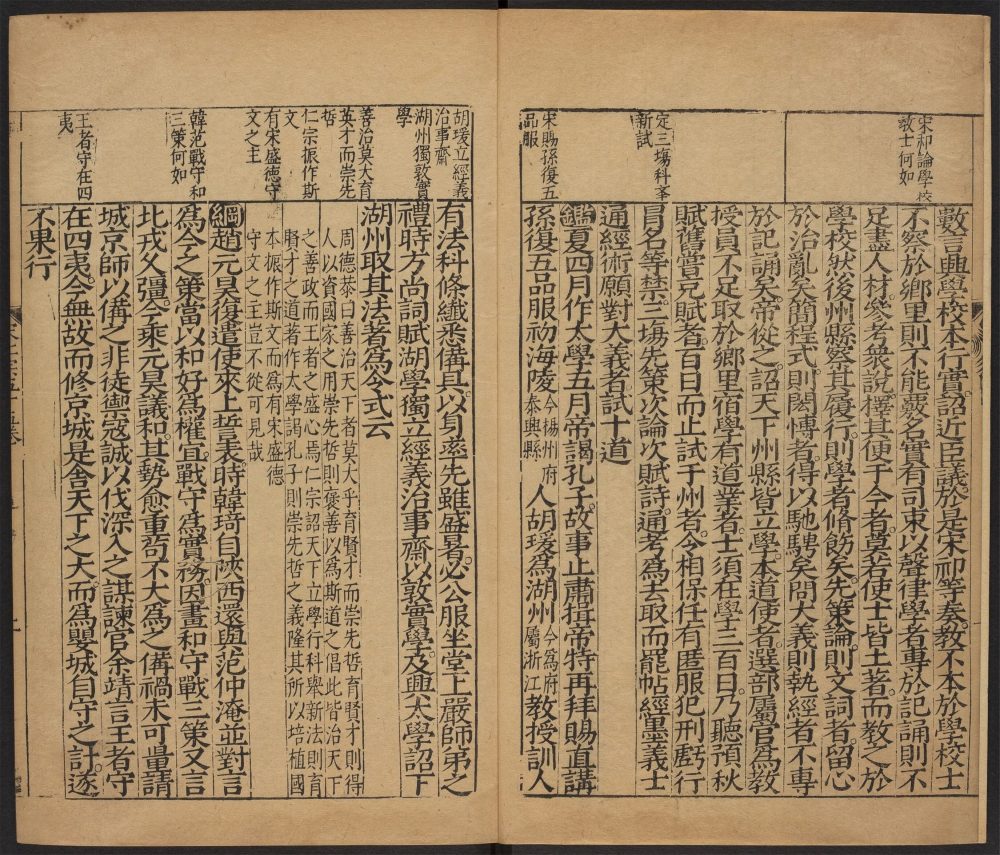 宋祁論學校
教士何如
定三塲科举
新試
宋賜孫復五
品服
數言興學校本行實詔近臣議於是宋祁等奏教不本於學校士
不察於鄉里則不能覈名實有司束以聲律學者專於記誦則不
足盡人材參考衆說擇其便于今者莫若使士皆土著而教之於
學校然後州縣察其履行則學者脩飭矣先策論則文詞者留心
於治亂矣簡程式則閎愽者得以馳騁矣問大義則執經者不專
於記誦矣帝從之詔天下州縣皆立學本道使者選部屬官為教
授員不足取於鄉里宿學有道業者士須在學三百日乃聽預秋
賦舊嘗充賦者百日而止試于州者令相保任有匿服犯刑虧行
冐名等禁三塲先策次論次賦詩通考為去取而罷帖經墨義士
通經術願對大義者試十道
鑑夏四月作太學五月帝謁孔子故事止肅揖帝特再拜賜直講
孫復五品服初海陵今揚州府泰興縣人胡瑗為湖州今為府屬浙江教授訓人
胡瑗立經義
治事齋
湖州獨敦實
學
善治莫大育
英才而崇先
哲
仁宗振作斯
文
有宋盛德守
文之主
韓范戰守和
三策何如
王者守在四
夷
有法科條纖悉備具以身先雖盛暑必公服坐堂上嚴師弟之
禮時方尚詞賦湖學獨立經義治事齋以敦實學及興太學詔下
湖州取其法者為令式云
周德恭曰善治天下者莫大乎育賢才而崇先哲育賢才則得
人以資國家之用崇先哲則褒善以為斯道之倡此皆治天下
之善政而王者之盛心焉仁宗詔天下立學行科舉新法則育
賢才之道著作太學謁孔子則崇先哲之義隆其所以培植國
本振作斯文而為有宋盛德
守文之主豈不從可見哉
綱趙元昊復遣使來上誓表時韓琦自陜西還與范仲淹並對言
為今之策當以和好為權宜戰守為實務因畫和守戰三策又言
北戎久彊今乘元昊議和其勢愈重苟不大為之備禍未可量請
城京師以備之非徒御寇誠以伐深入之謀諫官余靖言王者守
在四夷今無故而修京城是舍天下之大而為嬰城自守之計遂
不果行